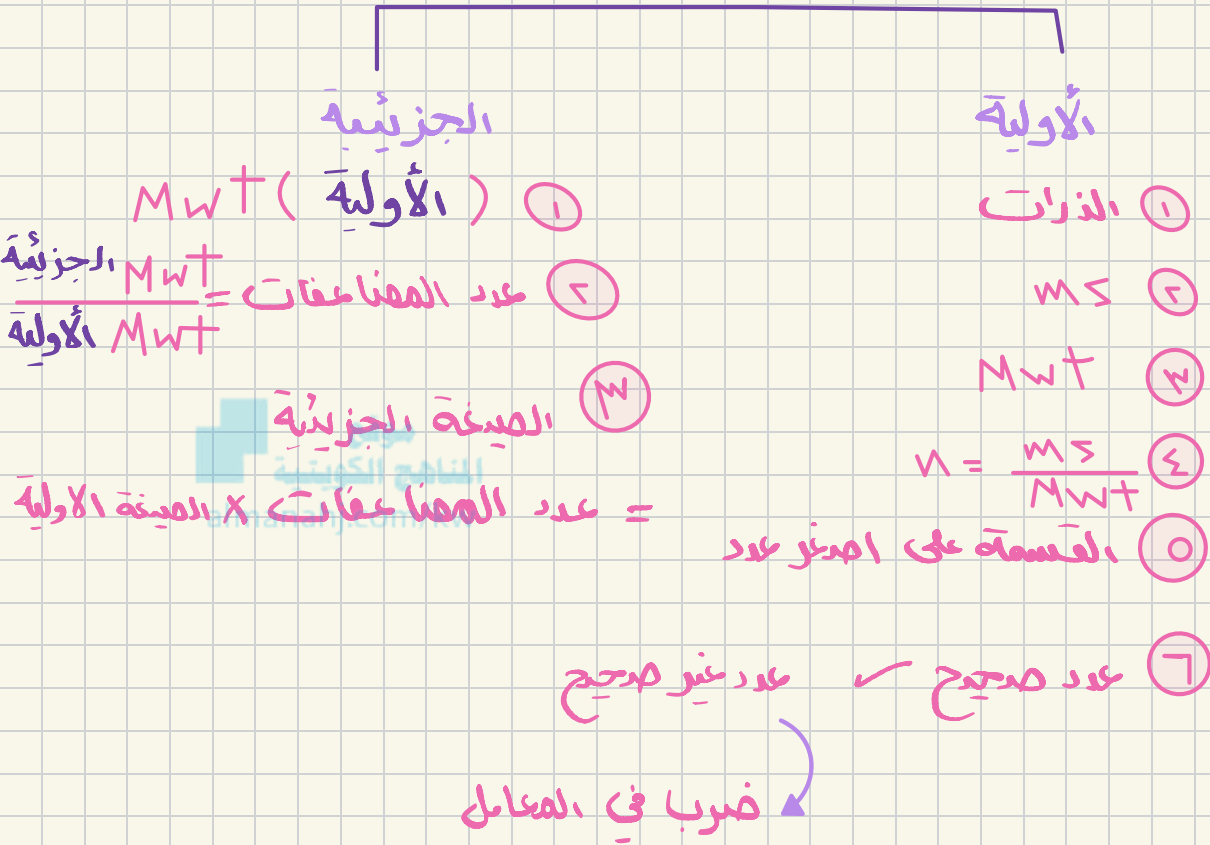 الأولية
① الذرات
② ms
③ Mwt
④ n = ms / Mwt
⑤ القسمة على اصغر عدد
⑥ عدد صحيح ✓ عدد غير صحيح
ضرب في المعامل
الجزيئية
① Mwt ( الأولية )
② عدد المضاعفات = Mwt الجزيئية / Mwt الأولية
③ الصيغة الجزيئية
= عدد المضاعفات × الصيغة الاولية
موقع
المناهج الكويتية
almanahj.com/kw